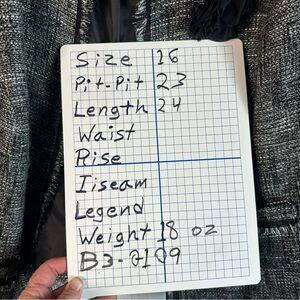 Size 16
Pit-Pit 23
Length 24
Waist
Rise
Iiseam
Legend
Weight 18 oz
B3-2109